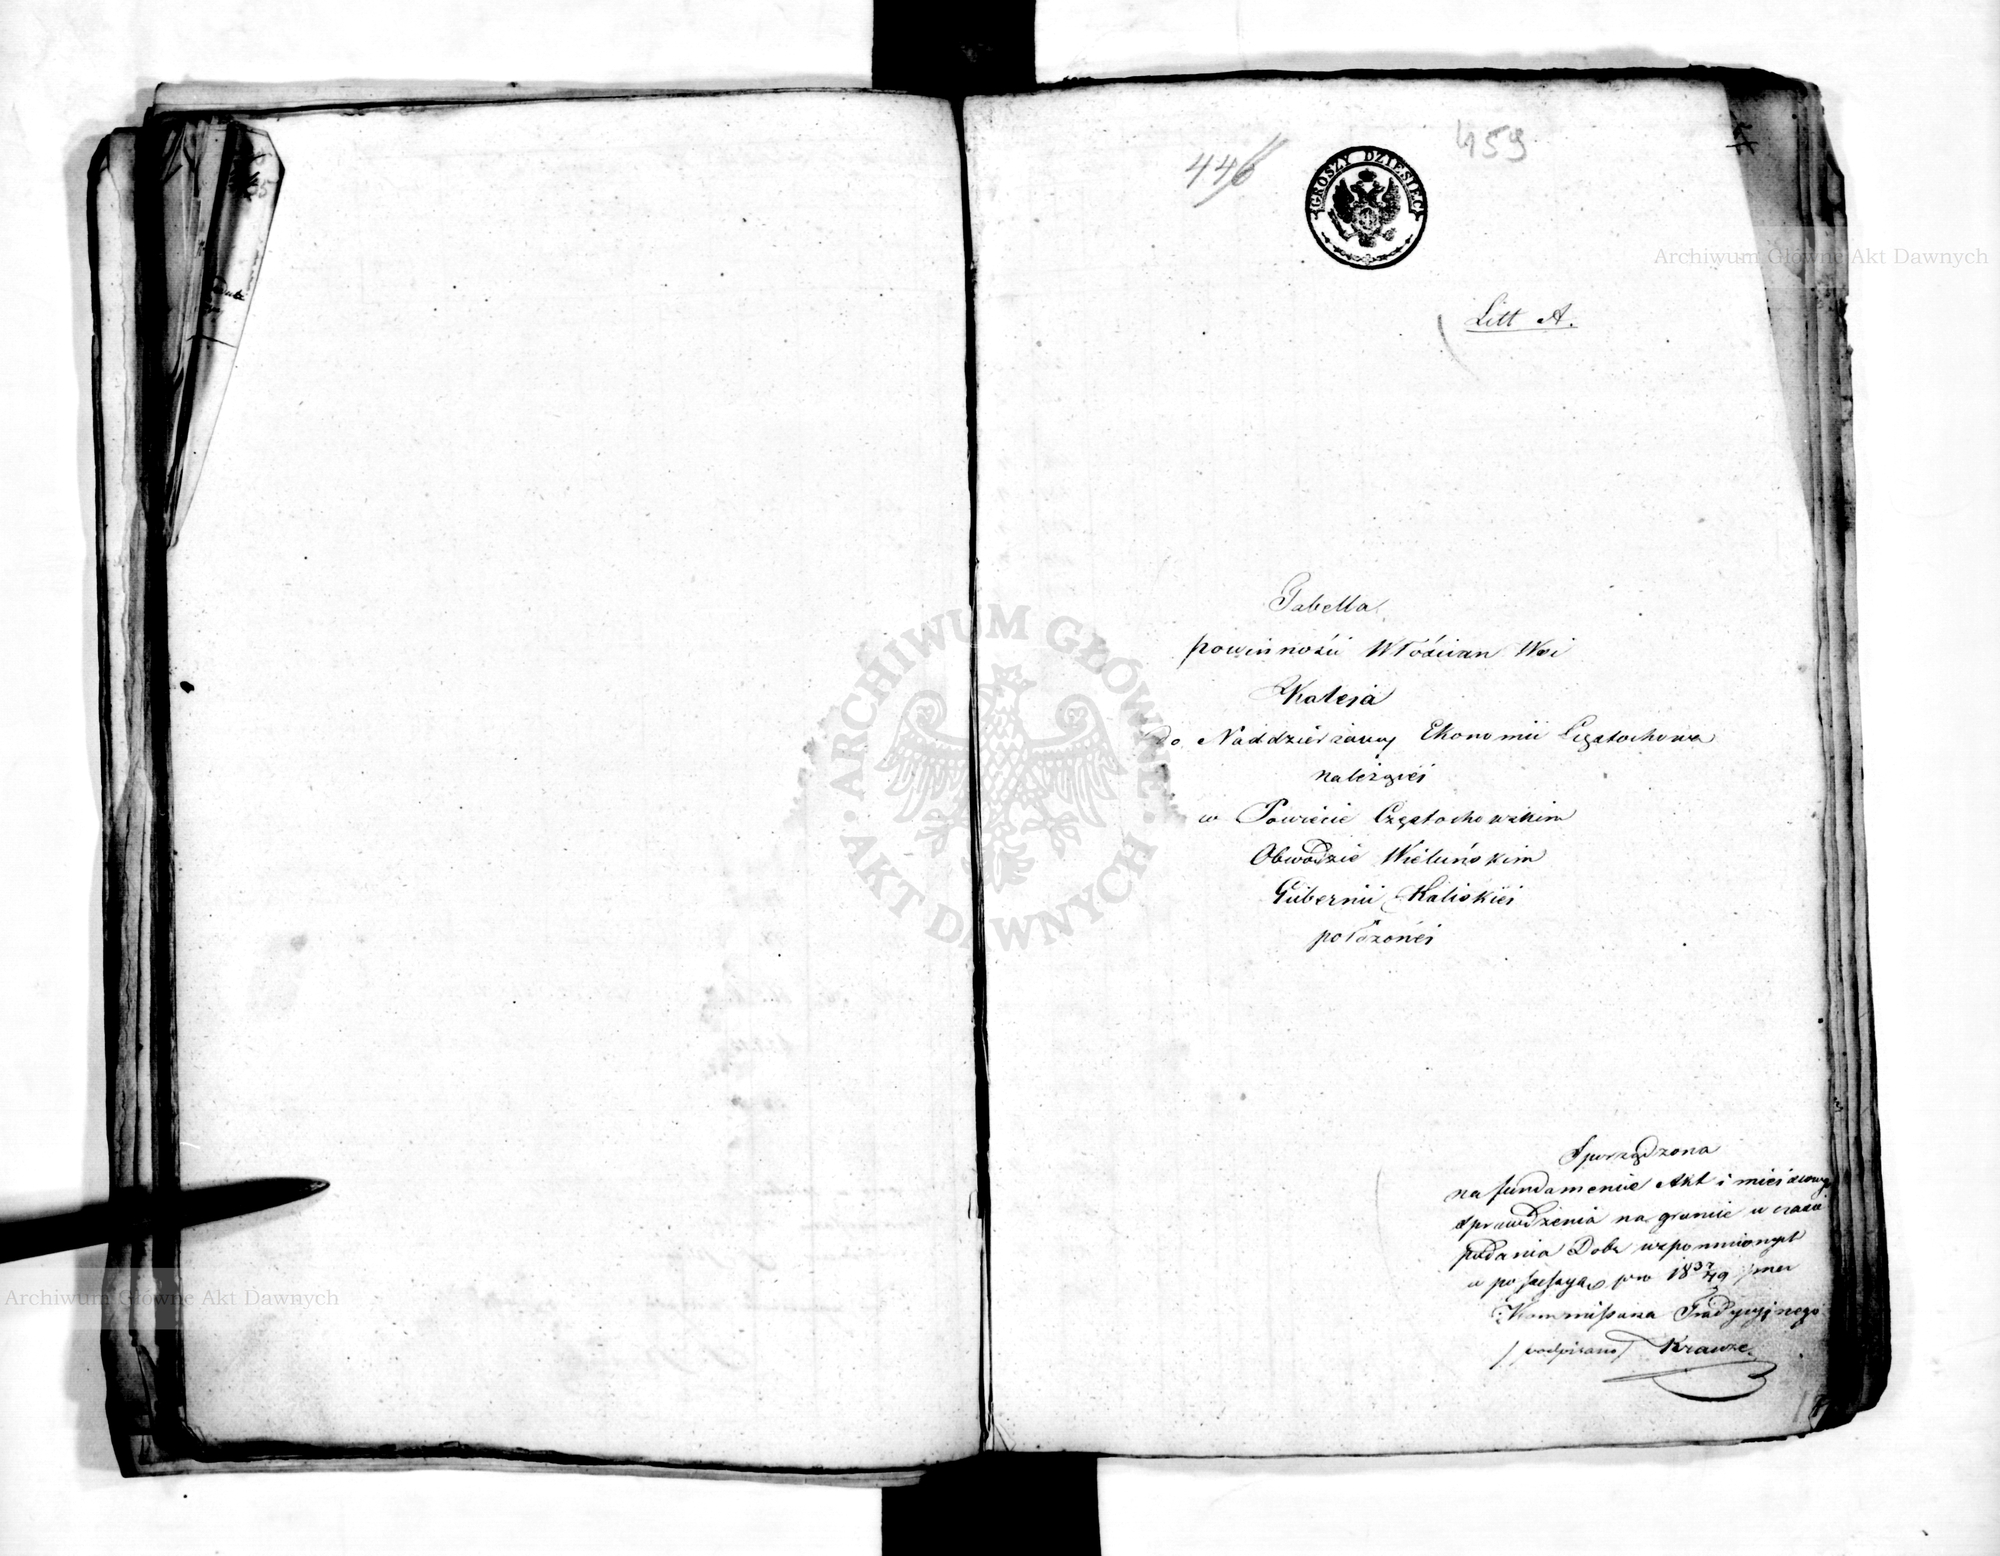 446
459
GROSZY DZIESIĘĆ
Archiwum Główne Akt Dawnych
Litt A.
Tabella
powinności Włościan Wsi
Kaleja
do Naddzierżawy Ekonomii Częstochowa
należącéj
w Powiecie Częstochowskim
Obwodzie Wieluńskim
Gubernii Kaliskiéj
położonéj
ARCHIWUM GŁÓWNE
AKT DAWNYCH
Sporządzona
na fundamencie Akt i miejscowego
sprawdzenia na gruncie w czasie
podania Dóbr wspomnionych
w possessyą pro 18 37/49 przez
Kommissarza Tradycyjnego
/podpisano/ Krauze
Archiwum Główne Akt Dawnych